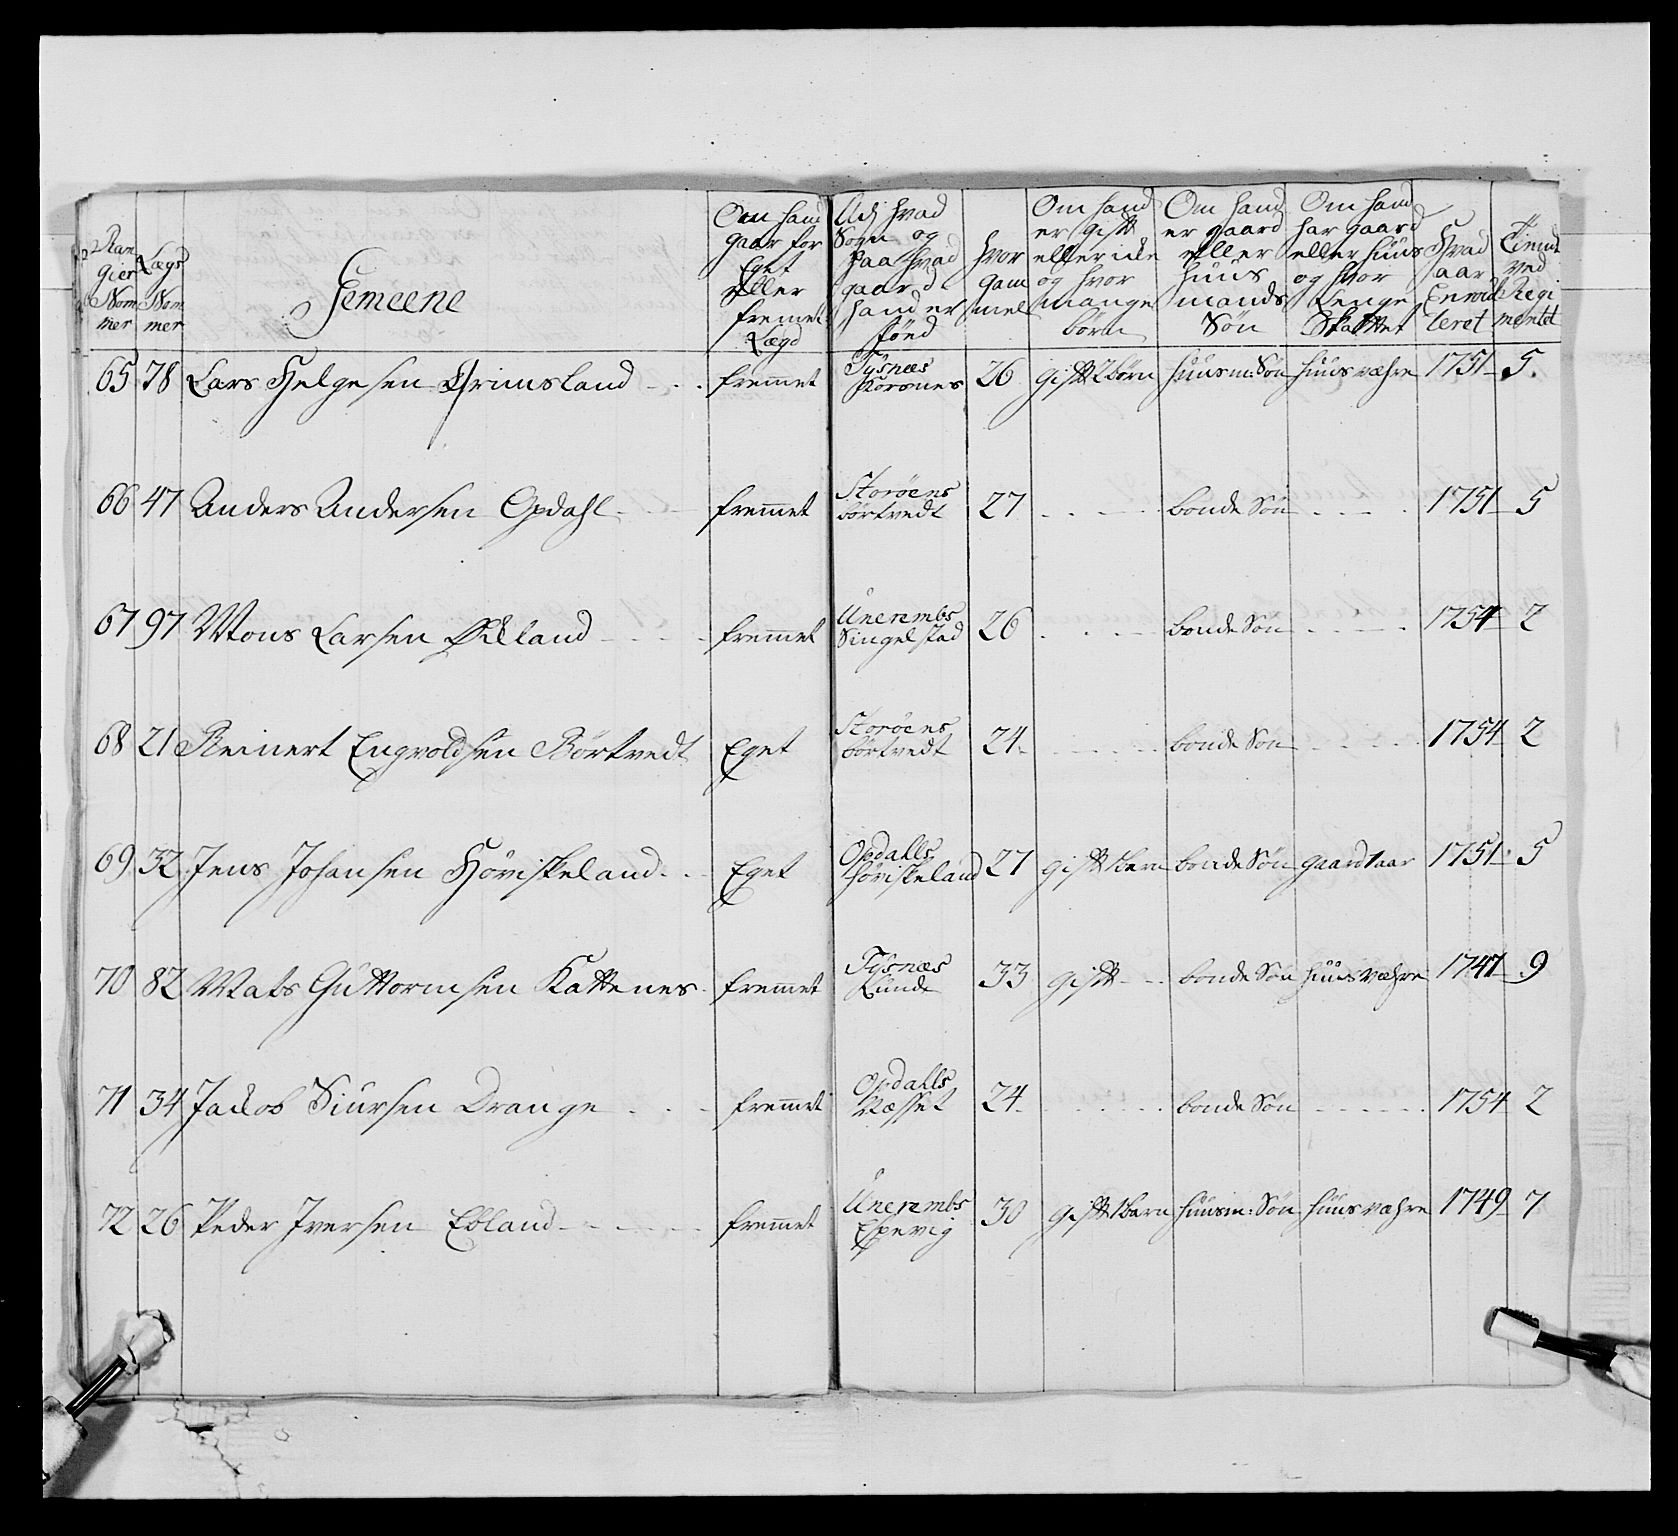 Ran gier Nom mer | Lægs Nom mer | Gemeene | Om hand gaar for Eget eller fremet Lægd | Udj hvad Sogn og paa hvad gaard hand er fönd | hvor gam mel | Om hand er gift eller icke og hvor mange börn | Om hand er gaard eller huus mands Sön | Om hand har gaard eller huus og hvor Lenge Skattet | Hvad aar Enroulleret | Tient ved Regi mentet
65 | 78 | Lars Helgesen Grimsland | fremmet | Tysnæs Korsnes | 26 | gift 2 börn | huusm: Sön | huus væhre | 1751 | 5.
66 | 47 | Anders Andersen Opdahl | fremmet | Storöens börtvedt | 27 | | bonde Sön | | 1751 | 5
67 | 97 | Mons Larsen Økland | fremmet | Unerembs Singelstad | 26 | | bonde Sön | | 1754 | 2
68 | 21 | Reinert Engvoldsen Börtvedt | Eget | Storöens börtvedt | 24 | | bonde Sön | | 1754 | 2
69 | 32 | Jens Johansen Höviskeland | Eget | Opdalls höviskeland | 27 | gift 1 barn | bonde Sön | gaard 1 aar | 1751 | 5
70 | 82 | Mats Guttormsen Kattenes | fremmet | Tysnæs Lunde | 33 | gift | bonde Sön | huus væhre | 1747 | 9
71 | 34 | Jacob Siursen Drange | fremmet | Opdalls Næsset | 24 | | bonde Sön | | 1754 | 2
72 | 26 | Peder Iversen Ebland | fremmet | Unerembs Espevig | 30 | gift 1 barn | huusm: Sön | huus væhre | 1749 | 7